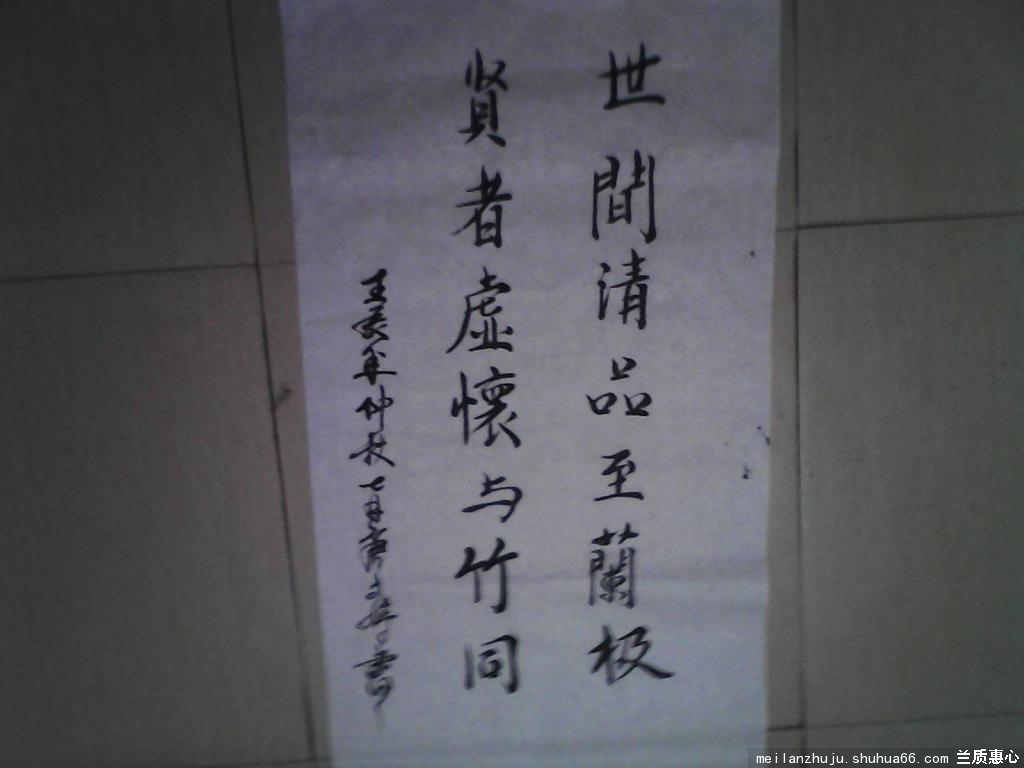 世間清品至蘭极
贤者虚懷与竹同
仲秋七月
meilanzhuju.shuhua66.com 兰质惠心